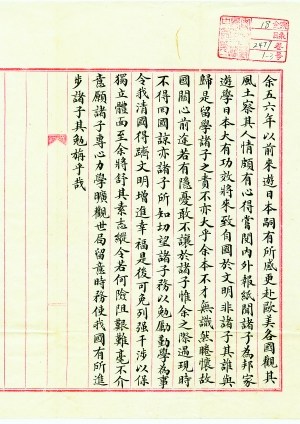 余五六年以前來遊日本嗣有所感更赴歐美各國觀其
風土察其人情頗有心得嘗閱内外報紙聞諸子為邦家
遊學日本大有功放將來致自國於文明非諸子其誰與
歸是留學諸子之責不亦大乎余本不才無識然睠懷故
國關心前途若有隱憂敢不讓於諸子惟余之際遇現時
不得回國諒亦諸子所知切望諸子務以勉勵勤學為事
令我清國得躋文明增進幸福是後可免列强干涉以保
獨立體面至余將舒其素志縱令若何險阻艱難毫不介
意願諸子專心力學曠觀世局留意時務使我國有所進
步諸子其勉旃乎哉
18
2477
1-3